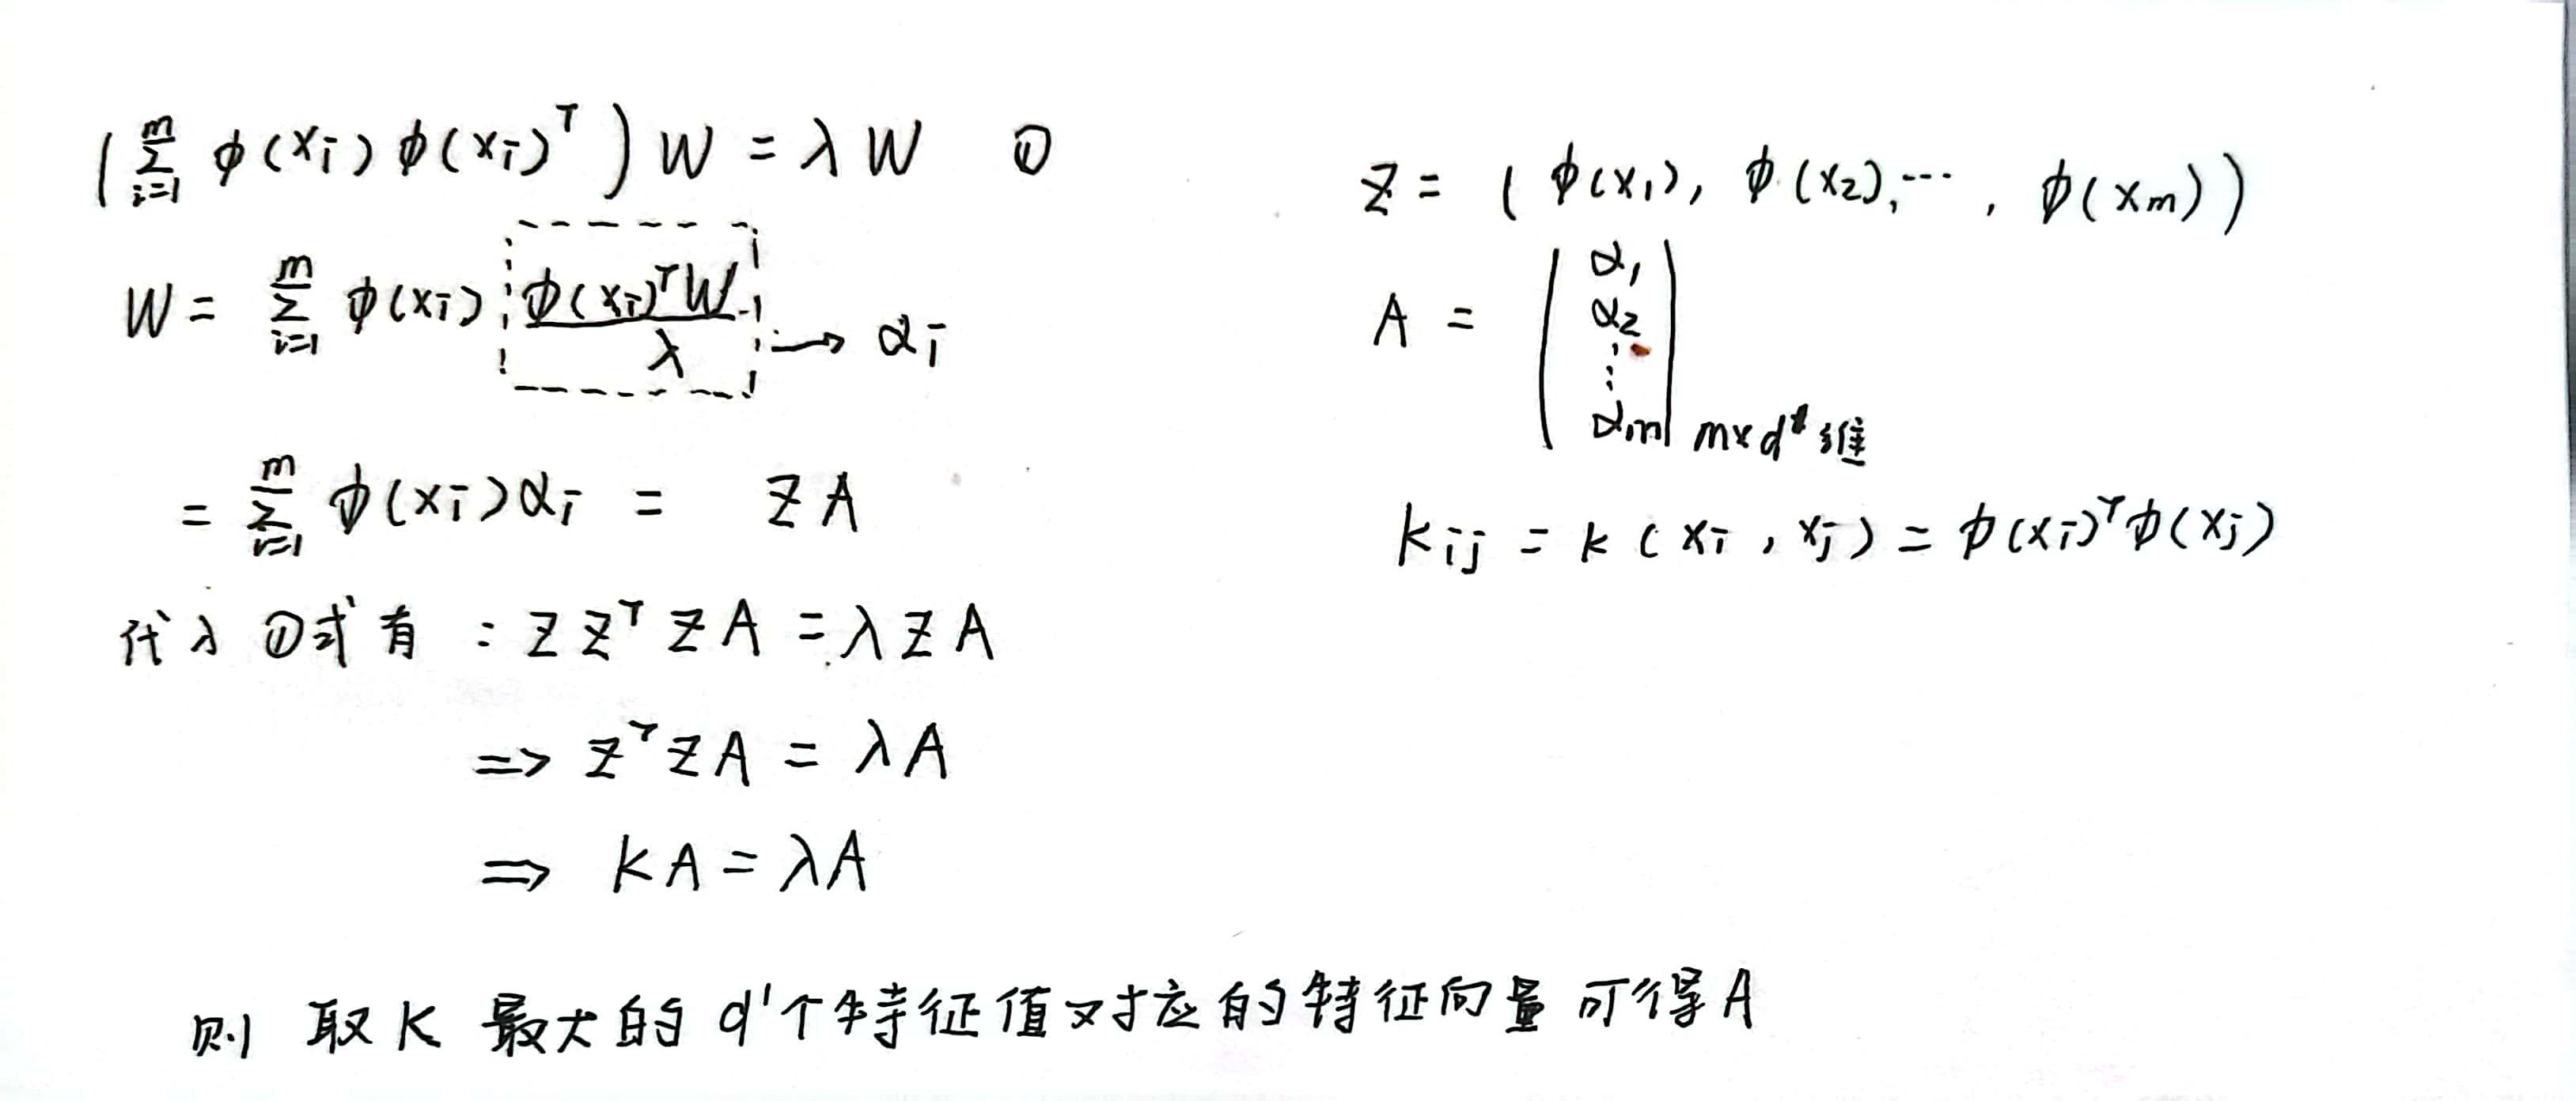 (∑_{i=1}^{m} φ(xi) φ(xi)^T) W = λ W ①
W = ∑_{i=1}^{m} φ(xi) φ(xi)^T W / λ → αi
= ∑_{i=1}^{m} φ(xi) αi = Z A
代入 ①式有 : Z Z^T Z A = λ Z A
⇒ Z^T Z A = λ A
⇒ K A = λ A
Z = ( φ(x1), φ(x2), ⋯ , φ(xm) )
A = (α1 α2 ⋮ αm) m×d' 维
Kij = k ( xi , xj ) = φ(xi)^T φ(xj)
则 取 K 最大的 d' 个特征值对应的特征向量 可得 A